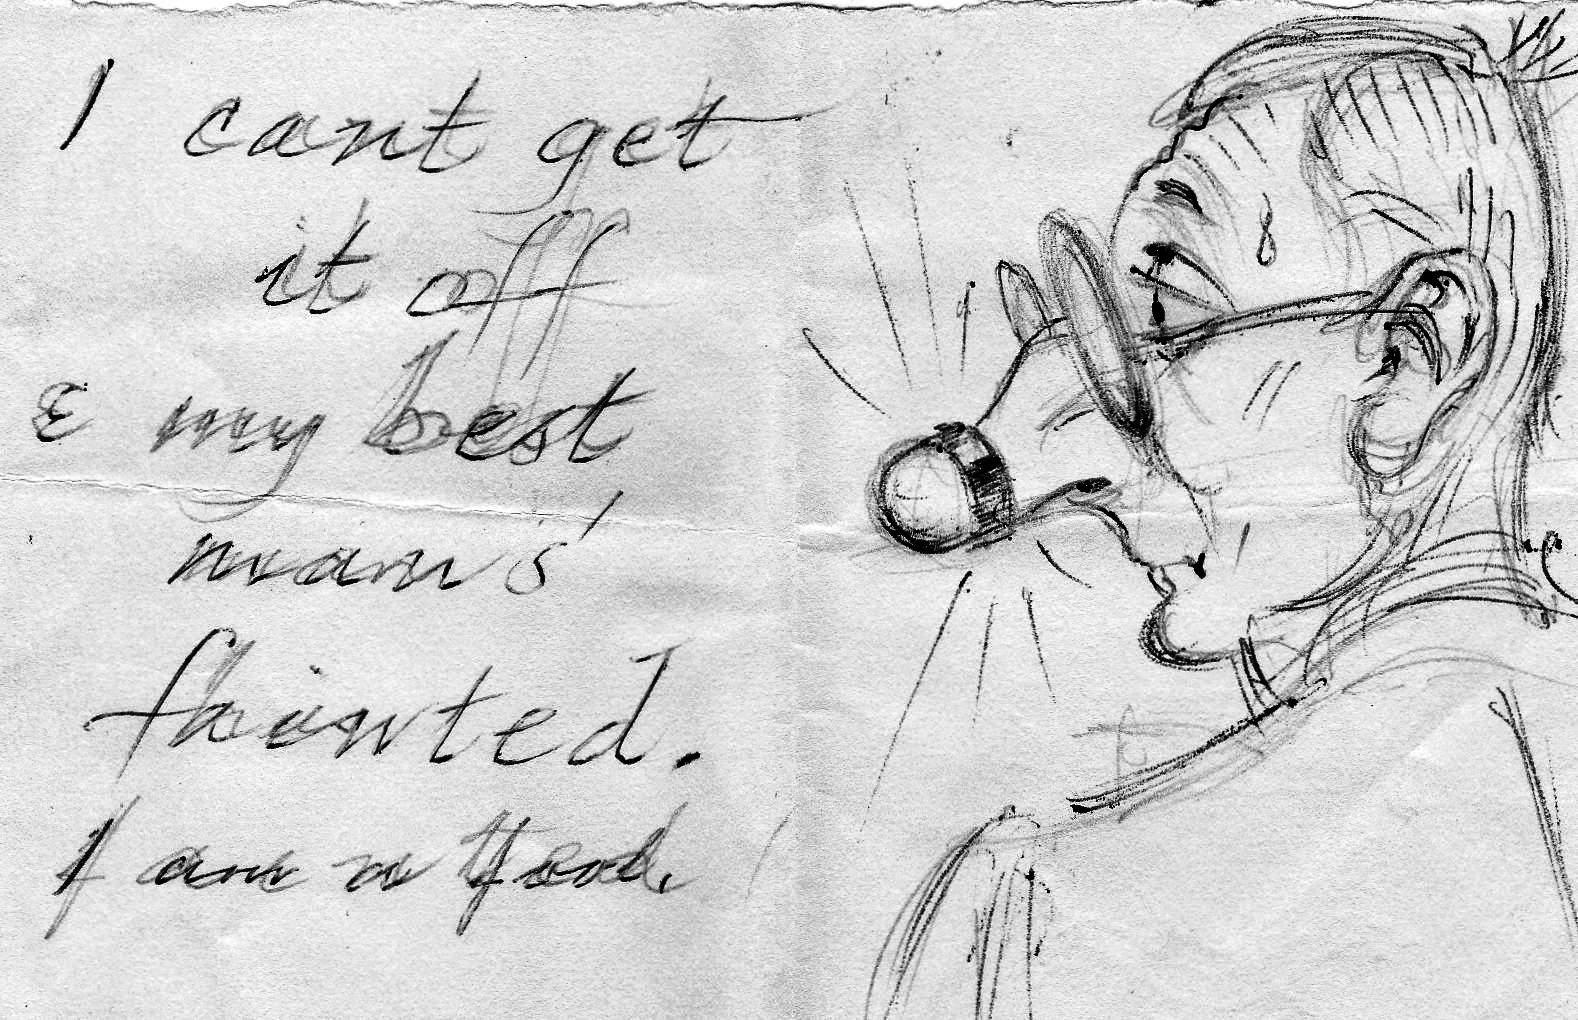 I cant get
it off
& my best
man's
fainted.
I am a fool.